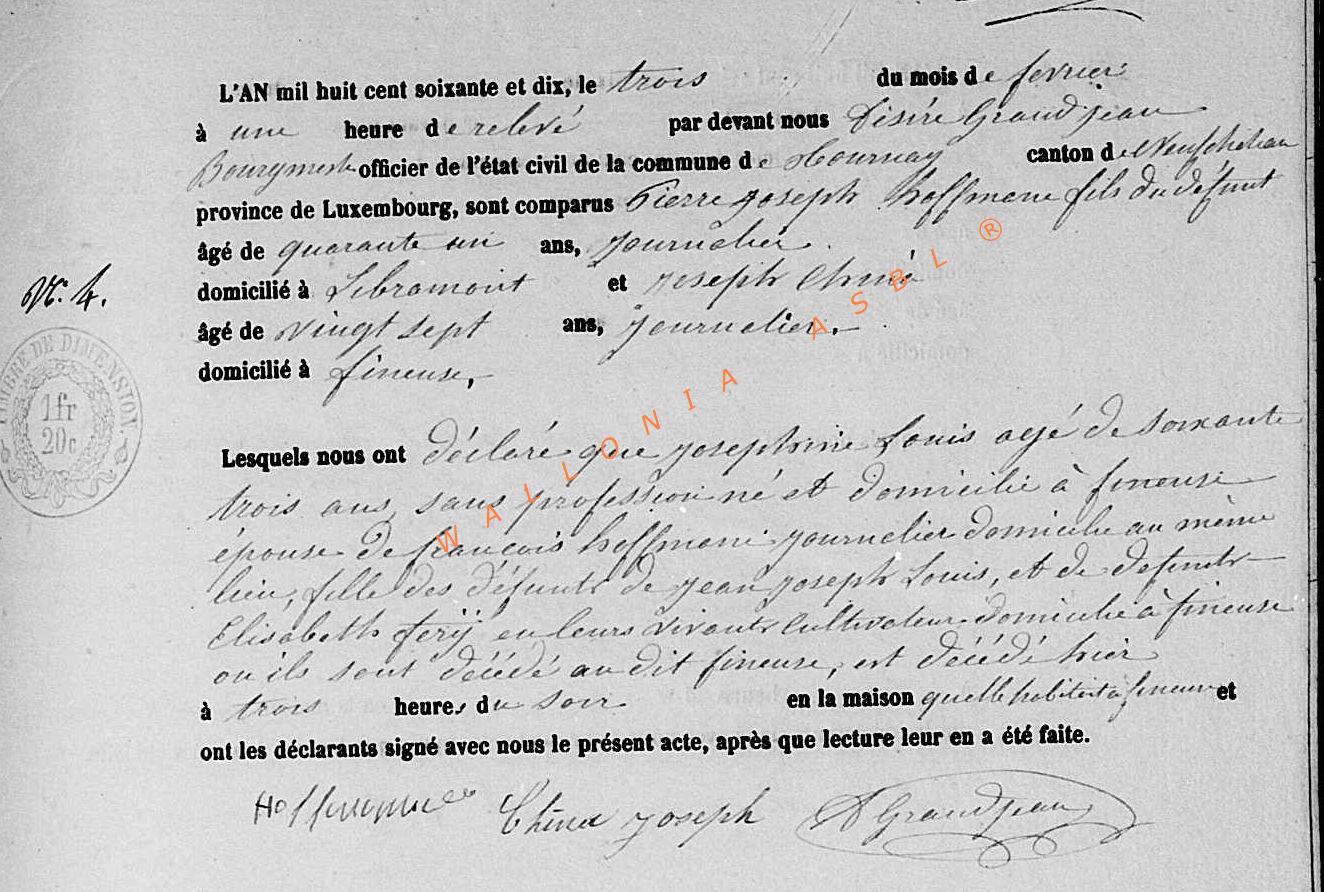 L'AN mil huit cent soixante et dix, le trois du mois de fevrier
à une heure de relevé par devant nous Désiré Grandjean
Bourgmestre officier de l'état civil de la commune de Tournay canton de Neufchateau
province de Luxembourg, sont comparus Pierre Joseph hoffmann fils du défunt
âgé de quarante un ans, journalier
domicilié à Libramont et Joseph
N° 4.
âgé de vingt sept ans, journalier.
domicilié à fineuse,
TIMBRE DE DIMENSION.
1fr
20c
Lesquels nous ont déclaré que josephine Louis agé de soixante
trois ans sans profession né et domicilié à fineuse
épouse de françois hoffmann journalier domicilie au même
lieu, fille des défunts de jean joseph Louis, et de defunte
Elisabeth ferij en leurs vivants cultivateur domicilié à fineuse
ou ils sont décédé au dit fineuse, est décédé hier
à trois heures du soir en la maison quelle habitait à fineuse et
ont les déclarants signé avec nous le présent acte, après que lecture leur en a été faite.
Joseph D Grandjean
WALLONIA ASBL ®